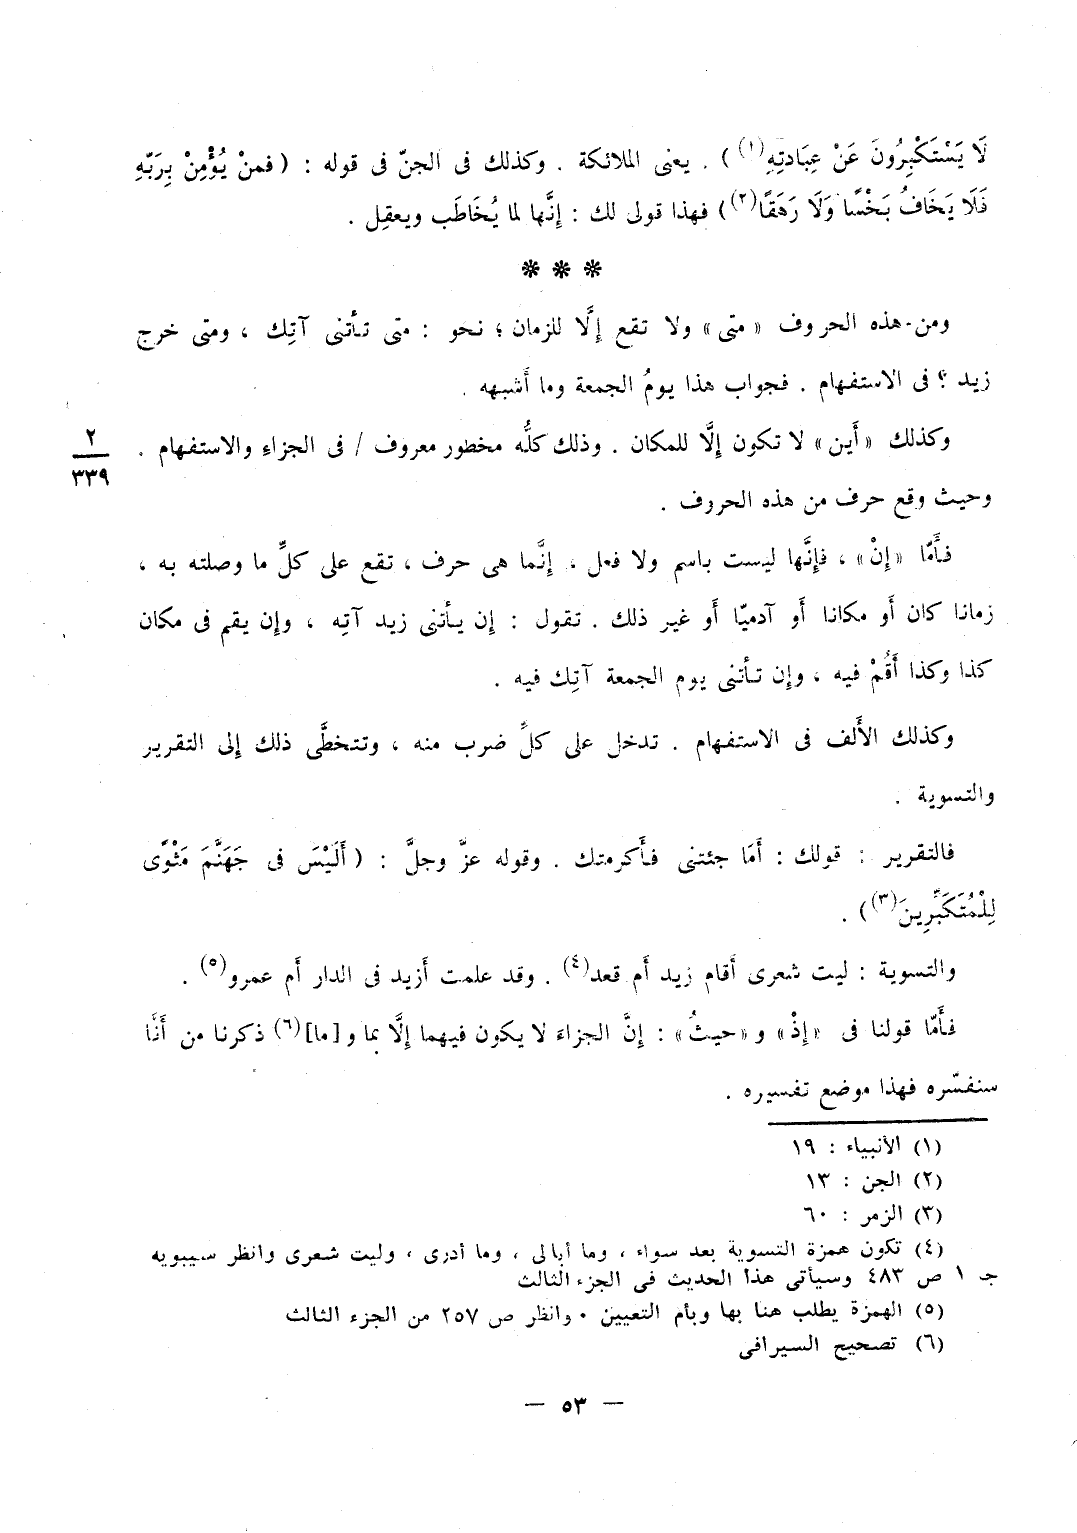 لَا يَسْتَكْبِرُونَ عَنْ عِبَادتِهِ(١) ) . يعنى الملائكة . وكذلك فى الجنّ فى قوله : ( فمنْ يُؤْمِنْ بِرَبّهِ
فَلَا يَخَافُ بَخْسًا وَلَا رَهَقًا(٢) ) فهذا قولى لك : إنَّها لما يُخَاطَب ويعقِل .
❋ ❋ ❋
ومن هذه الحروف « متى » ولا تقع إلَّا للزمان ؛ نحو : متى تأْتنى آتِك ، ومتى خرج
زيد ؟ فى الاستفهام . فجواب هذا يومُ الجمعة وما أَشبهه .
وكذلك « أَين » لا تكون إلَّا للمكان . وذلك كلُّه مخطور معروف / فى الجزاء والاستفهام .
٢
٣٣٩
وحيث وقع حرف من هذه الحروف .
فأَمّا « إنْ » ، فإنَّها ليست باسم ولا فعل ، إنَّما هى حرف ، تقع على كلِّ ما وصلته به ،
زمانا كان أَو مكانا أَو آدميّا أَو غير ذلك . تقول : إن يأْتنى زيد آتِه ، وإن يقم فى مكان
كذا وكذا أَقُمْ فيه ، وإن تأْتنى يوم الجمعة آتِك فيه .
وكذلك الأَلف فى الاستفهام . تدخل على كلِّ ضرب منه ، وتتخطَّى ذلك إلى التقرير
والتسوية .
فالتقرير : قولك : أَمَا جئتنى فأَكرمتك . وقوله عزَّ وجلَّ : ( أَلَيْسَ فى جَهَنَّمَ مَثْوًى
لِلْمُتَكَبِّرِينَ(٣) ) .
والتسوية : ليت شعرى أَقام زيد أَم قعد(٤) . وقد علمت أَزيد فى الدار أَم عمرو(٥) .
فأَمّا قولنا فى « إذْ » و « حيثُ » : إنَّ الجزاءَ لا يكون فيهما إلَّا بما و [ما](٦) ذكرنا من أَنَّا
سنفسّره فهذا موضع تفسيره .
(١) الأنبياء : ١٩
(٢) الجن : ١٣
(٣) الزمر : ٦٠
(٤) تكون همزة التسوية بعد سواء ، وما أبالى ، وما أدرى ، وليت شعرى وانظر سيبويه
جـ ١ ص ٤٨٣ وسيأتى هذا الحديث فى الجزء الثالث
(٥) الهمزة يطلب هنا بها وبأم التعيين ٠ وانظر ص ٢٥٧ من الجزء الثالث
(٦) تصحيح السيرافى
— ٥٣ —